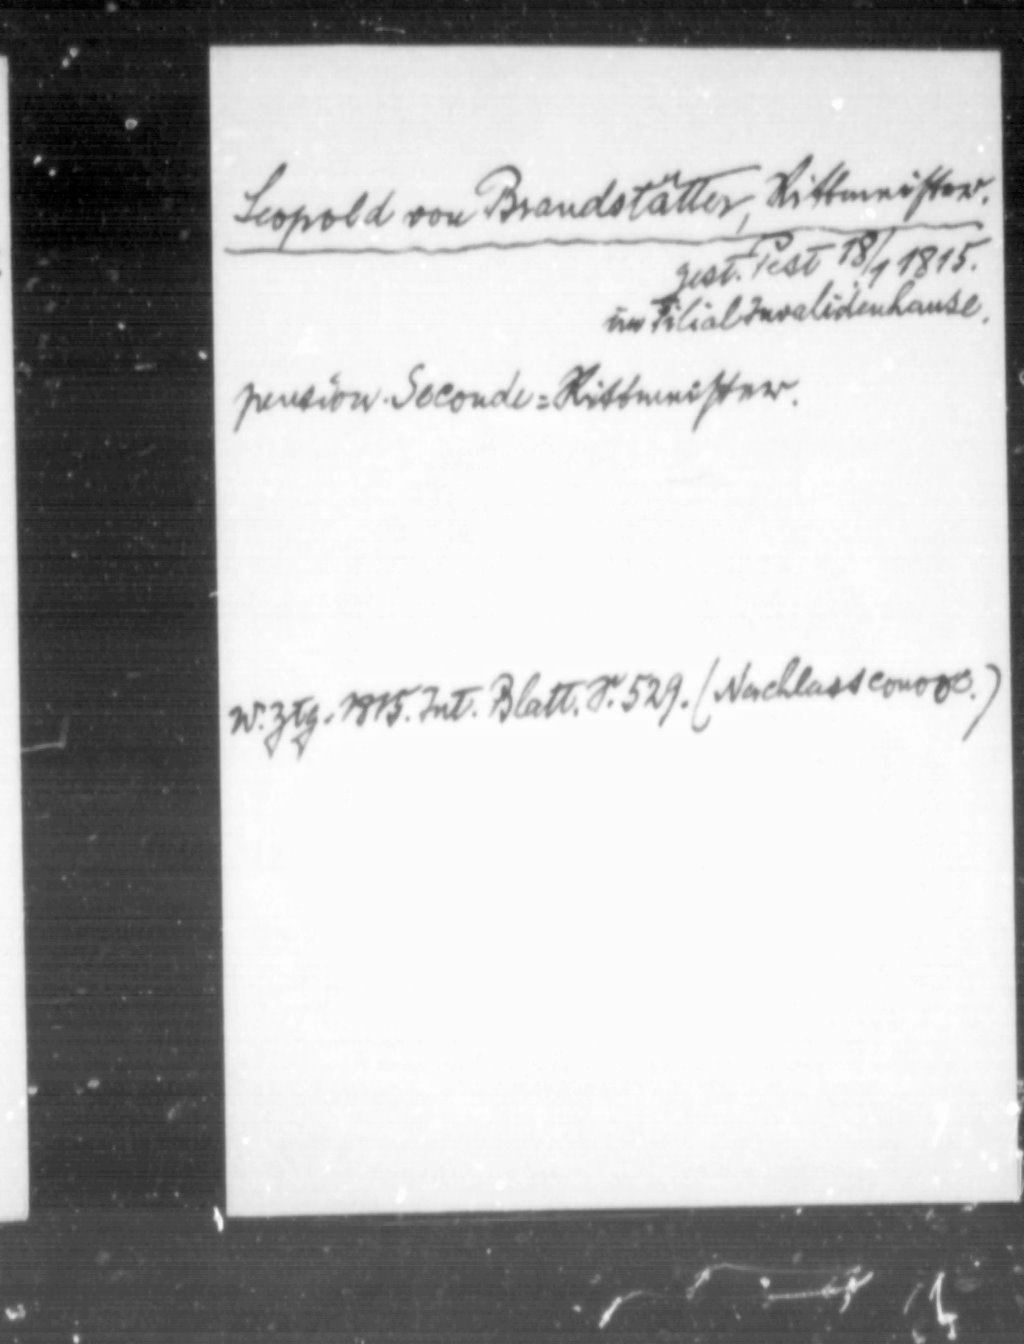 Leopold von Brandstätter, Rittmeister.
gest. Pest 18/1 1815.
im Filial Invalidenhause.
pension. Seconde=Rittmeister.
W. Ztg. 1815. Int. Blatt. S. 529. (Nachlassconvoc.)